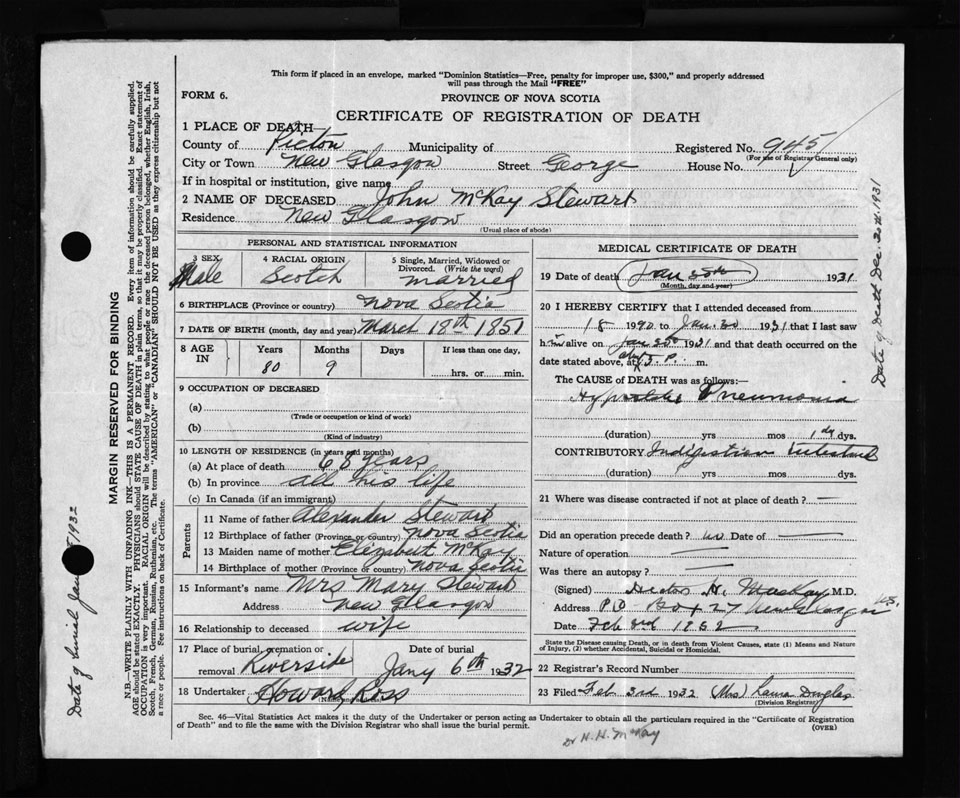 This form if placed in an envelope, marked "Dominion Statistics—Free, penalty for improper use, $300," and properly addressed
will pass through the Mail "FREE"
FORM 6.
PROVINCE OF NOVA SCOTIA
CERTIFICATE OF REGISTRATION OF DEATH
1 PLACE OF DEATH—
County of Pictou Municipality of Registered No. 945
(For use of Registrar General only)
City or Town New Glasgow Street George House No.
If in hospital or institution, give name
2 NAME OF DECEASED John McKay Stewart
Residence New Glasgow
(Usual place of abode)
PERSONAL AND STATISTICAL INFORMATION
3 SEX 4 RACIAL ORIGIN 5 Single, Married, Widowed or
Divorced. (Write the word)
Male Scotch married
6 BIRTHPLACE (Province or country) Nova Scotia
7 DATE OF BIRTH (month, day and year) March 18th 1851
8 AGE IN Years Months Days If less than one day,
80 9 hrs. or min.
9 OCCUPATION OF DECEASED
(a)
(Trade or occupation or kind of work)
(b)
(Kind of industry)
10 LENGTH OF RESIDENCE (in years and months)
(a) At place of death 68 years
(b) In province all his life
(c) In Canada (if an immigrant)
Parents
11 Name of father Alexander Stewart
12 Birthplace of father (Province or country) Nova Scotia
13 Maiden name of mother Elizabeth McKay
14 Birthplace of mother (Province or country) Nova Scotia
15 Informant's name Mrs Mary Stewart
Address New Glasgow
16 Relationship to deceased wife
17 Place of burial, cremation or Date of burial
removal Riverside Jany 6th 1932
18 Undertaker Howard Ross
MEDICAL CERTIFICATE OF DEATH
19 Date of death 1931
(Month, day and year)
20 I HEREBY CERTIFY that I attended deceased from
18 to Jan. 20 1931 that I last saw
him alive on Jan 1931 and that death occurred on the
date stated above, at 3. P. m.
The CAUSE of DEATH was as follows:—
Pneumonia
(duration) yrs mos dys.
CONTRIBUTORY Indigestion Intestinal
(duration) yrs mos dys.
21 Where was disease contracted if not at place of death? —
Did an operation precede death? no Date of —
Nature of operation —
Was there an autopsy? —
(Signed) H. MacKay, M.D.
Address P.O. Box 27 New Glasgow N.S.
Date Feb 3rd
State the Disease causing Death, or in death from Violent Causes, state (1) Means and Nature
of Injury, (2) whether Accidental, Suicidal or Homicidal.
22 Registrar's Record Number
23 Filed Feb 3rd 1932 (Mrs) Laura Douglas
(Division Registrar)
Sec. 46—Vital Statistics Act makes it the duty of the Undertaker or person acting as Undertaker to obtain all the particulars required in the "Certificate of Registration
of Death" and to file the same with the Division Registrar who shall issue the burial permit.
(OVER)
Dr H. H. McKay
MARGIN RESERVED FOR BINDING
N.B.—WRITE PLAINLY WITH UNFADING INK—THIS IS A PERMANENT RECORD. Every item of information should be carefully supplied.
AGE should be stated EXACTLY. PHYSICIANS should STATE CAUSE OF DEATH in plain terms, so that it may be properly classified. Exact statement of
OCCUPATION is very important. RACIAL ORIGIN will be described by stating to what people or race the deceased person belonged, whether English, Irish,
Scotch, French, German, Russian, Ruthenian, etc. The terms "AMERICAN" or "CANADIAN" SHOULD NOT BE USED as they express citizenship but not
a race or people. See instructions on back of Certificate.
Date of burial Jan 1932
Date of Death Dec. 1931